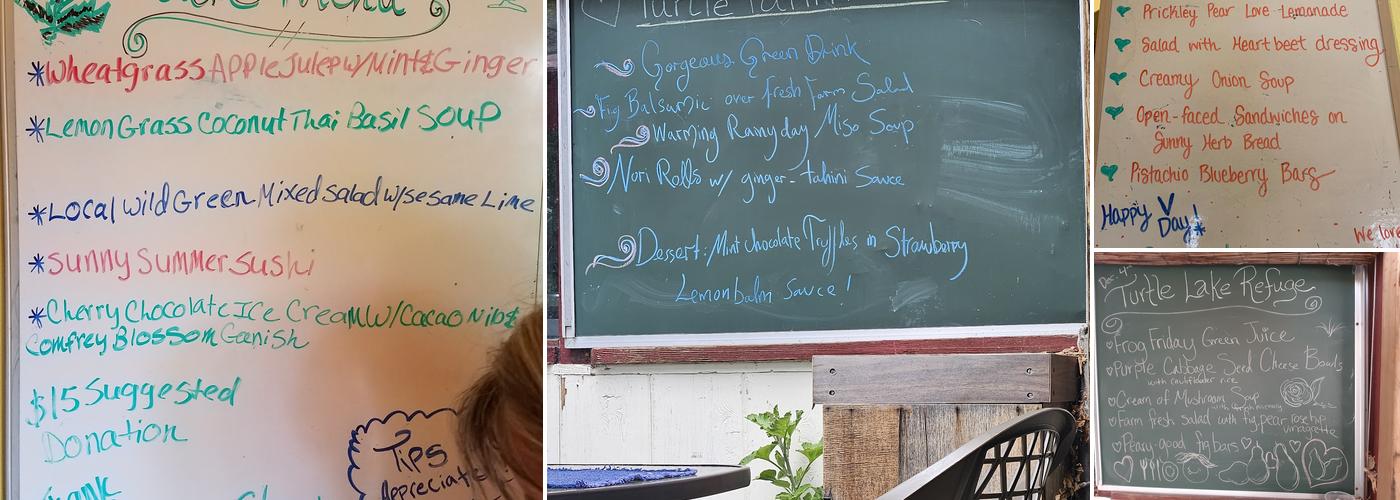 menu
*Wheatgrass Apple Julep w/Mint & Ginger
*Lemon Grass Coconut Thai Basil Soup
*Local Wild Green Mixed Salad w/Sesame Lime
*Sunny Summer Sushi
*Cherry Chocolate Ice Cream w/Cacao Nibs &
Comfrey Blossom Garnish
$15 Suggested
Donation
Tips
Appreciate
Turtle
Gorgeous Green Drink
Fig Balsamic over fresh Farm Salad
Warming Rainy day Miso Soup
Nori Rolls w/ ginger-tahini Sauce
Dessert: Mint Chocolate Truffles in Strawberry
Lemonbalm Sauce!
Prickley Pear Love Lemonade
Salad with Heartbeet dressing
Creamy Onion Soup
Open-faced Sandwiches on
Sunny Herb Bread
Pistachio Blueberry Bars
Happy V
Day!
We love
Dec 4th
Turtle Lake Refuge
Frog Friday Green Juice
Purple Cabbage Seed Cheese Bowls
with cauliflower rice
Cream of Mushroom Soup
Farm fresh salad with fig pear rosehip
vinaigrette
bars